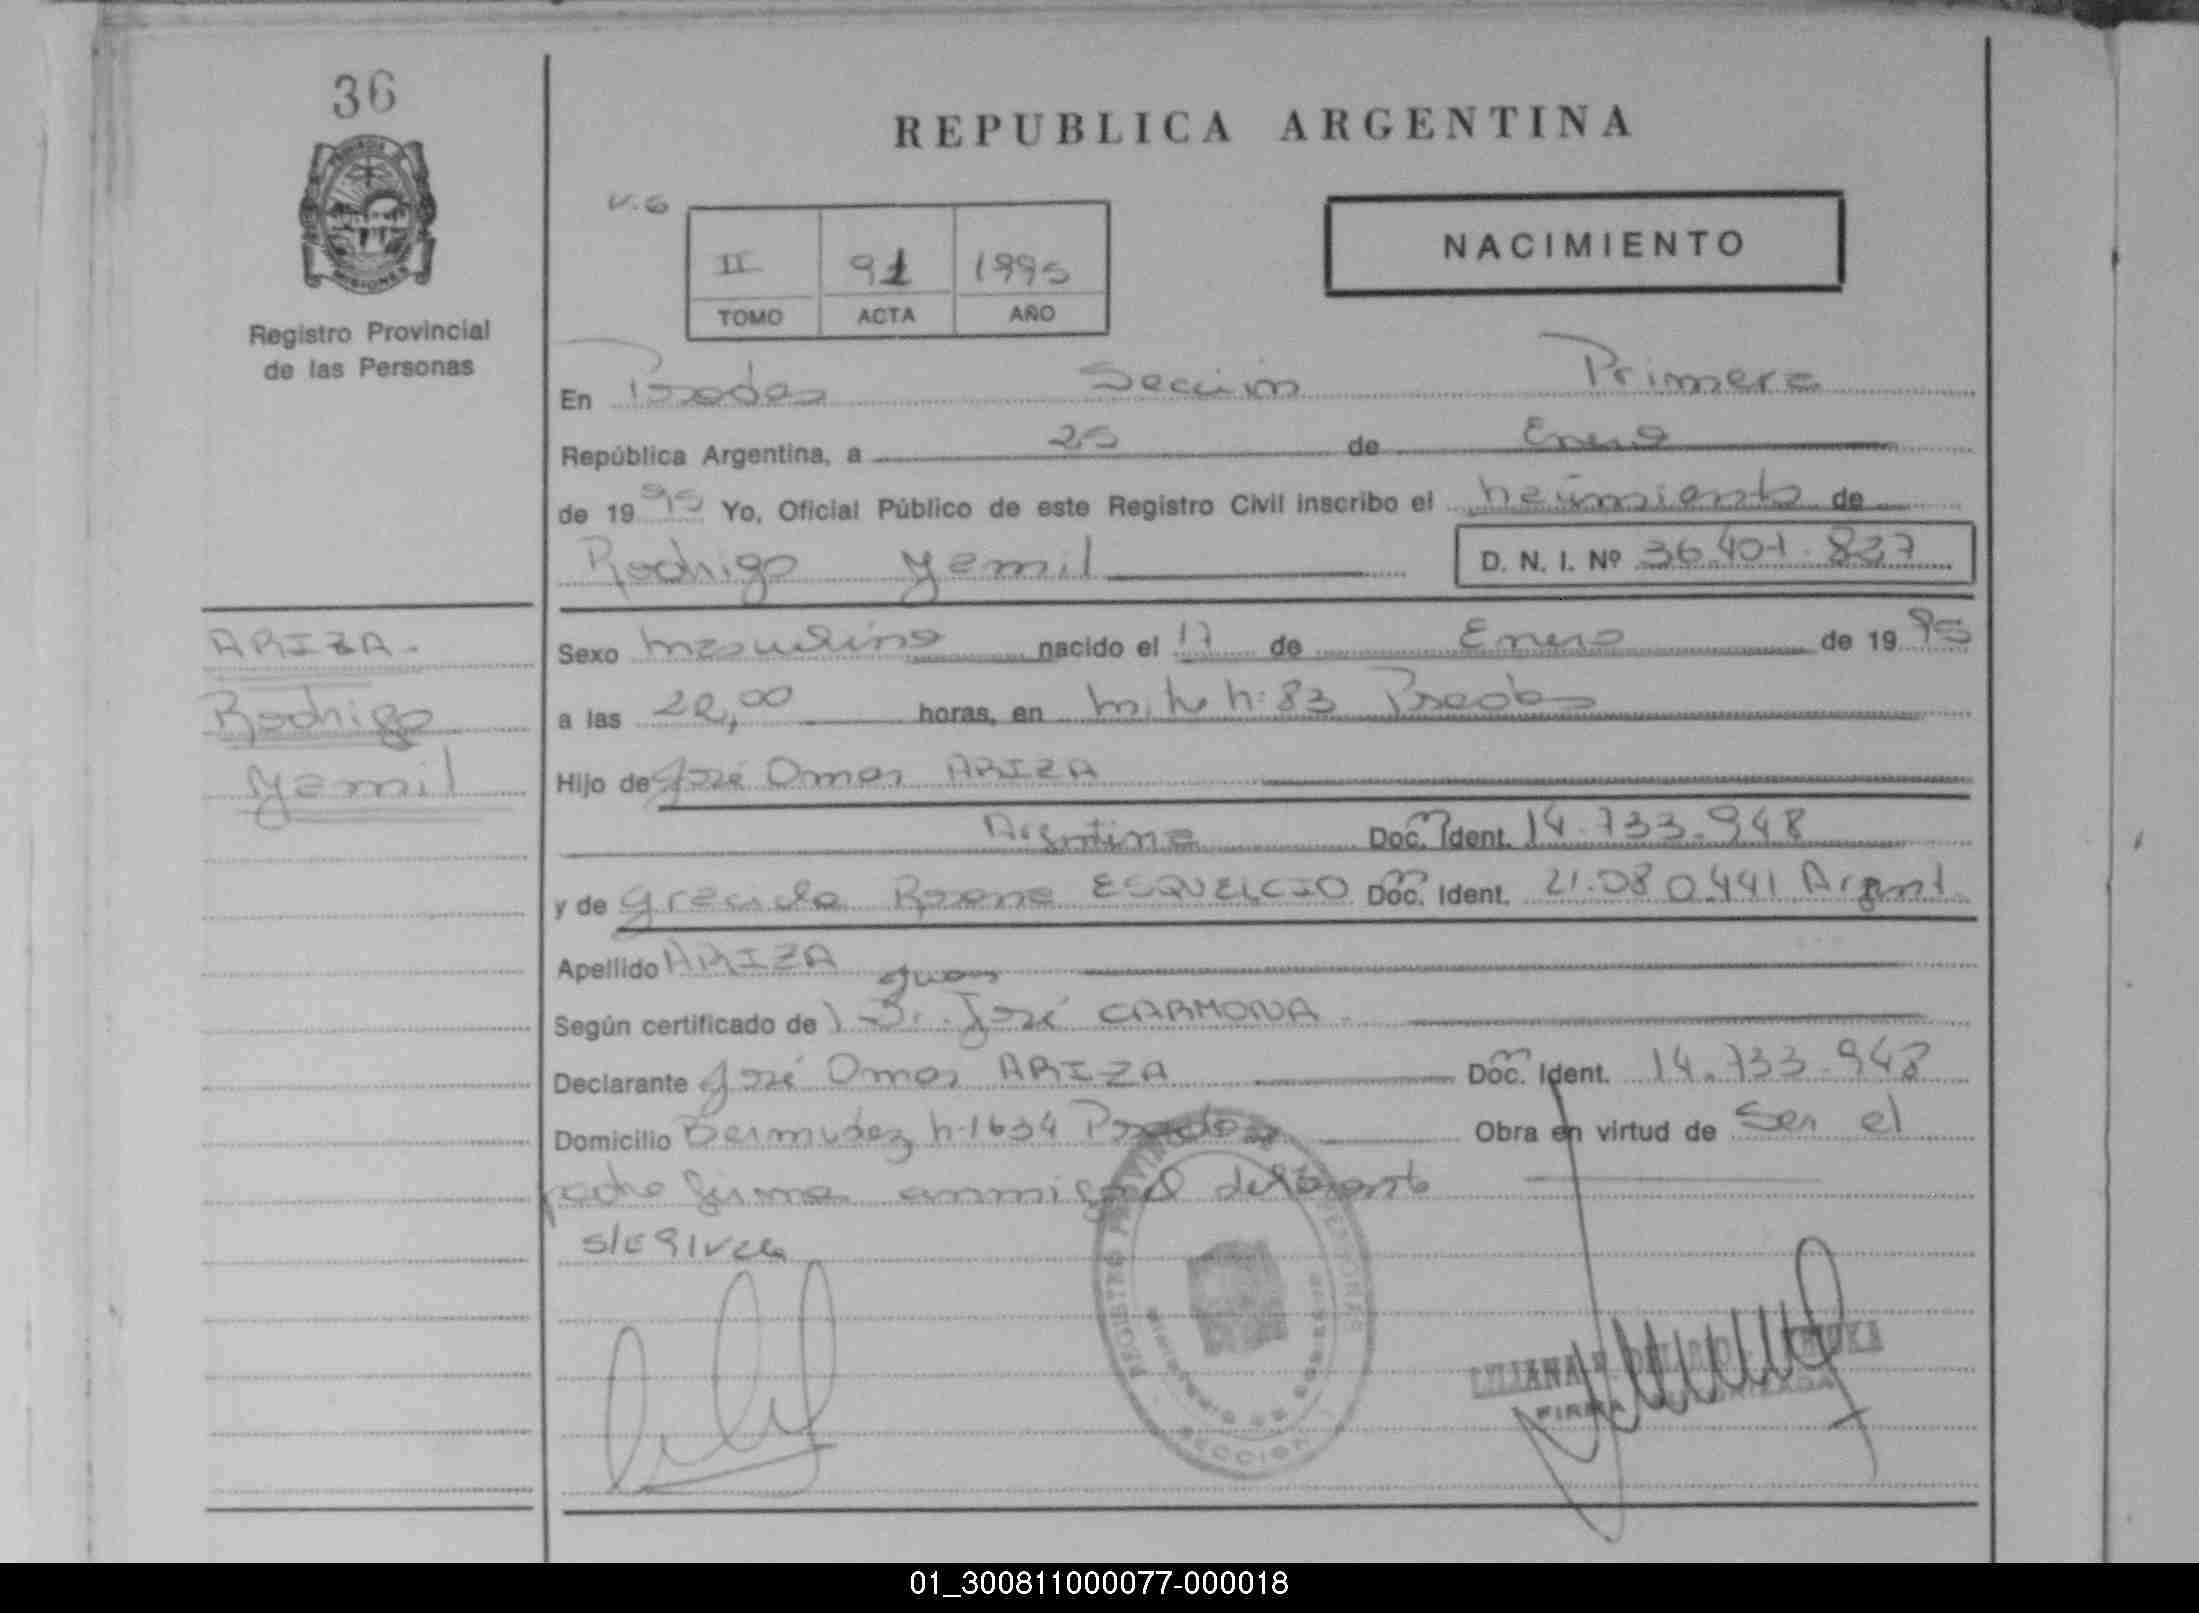 36
PROVINCIA DE
MISIONES
Registro Provincial
de las Personas
REPUBLICA ARGENTINA
II 91 1995
TOMO ACTA AÑO
NACIMIENTO
En Posadas Sección Primera
República Argentina, a 25 de Enero
de 1995 Yo, Oficial Público de este Registro Civil inscribo el nacimiento de
Rodrigo Yamil D. N. I. Nº 36.401.827
ARIZA.
Rodrigo
Yamil
Sexo masculino nacido el 17 de Enero de 1995
a las horas, en Mitre n: 83 Posadas
Hijo de José Omar ARIZA
Argentina Doc. Ident. 14.733.948
y de Graciela ESQUELCIO Doc. Ident. 21.080.441 Argent.
Apellido ARIZA
Juan
Según certificado de José CARMONA
Declarante José Omar ARIZA Doc. Ident. 14.733.948
Domicilio Bermudez n. 1634 Posadas Obra en virtud de Ser el
padre firma
REGISTRO PROVINCIAL DE LAS PERSONAS
MINISTERIO DE GOBIERNO
SECCION
LILIANA
FIRMA AUTORIZADA
01_300811000077-000018